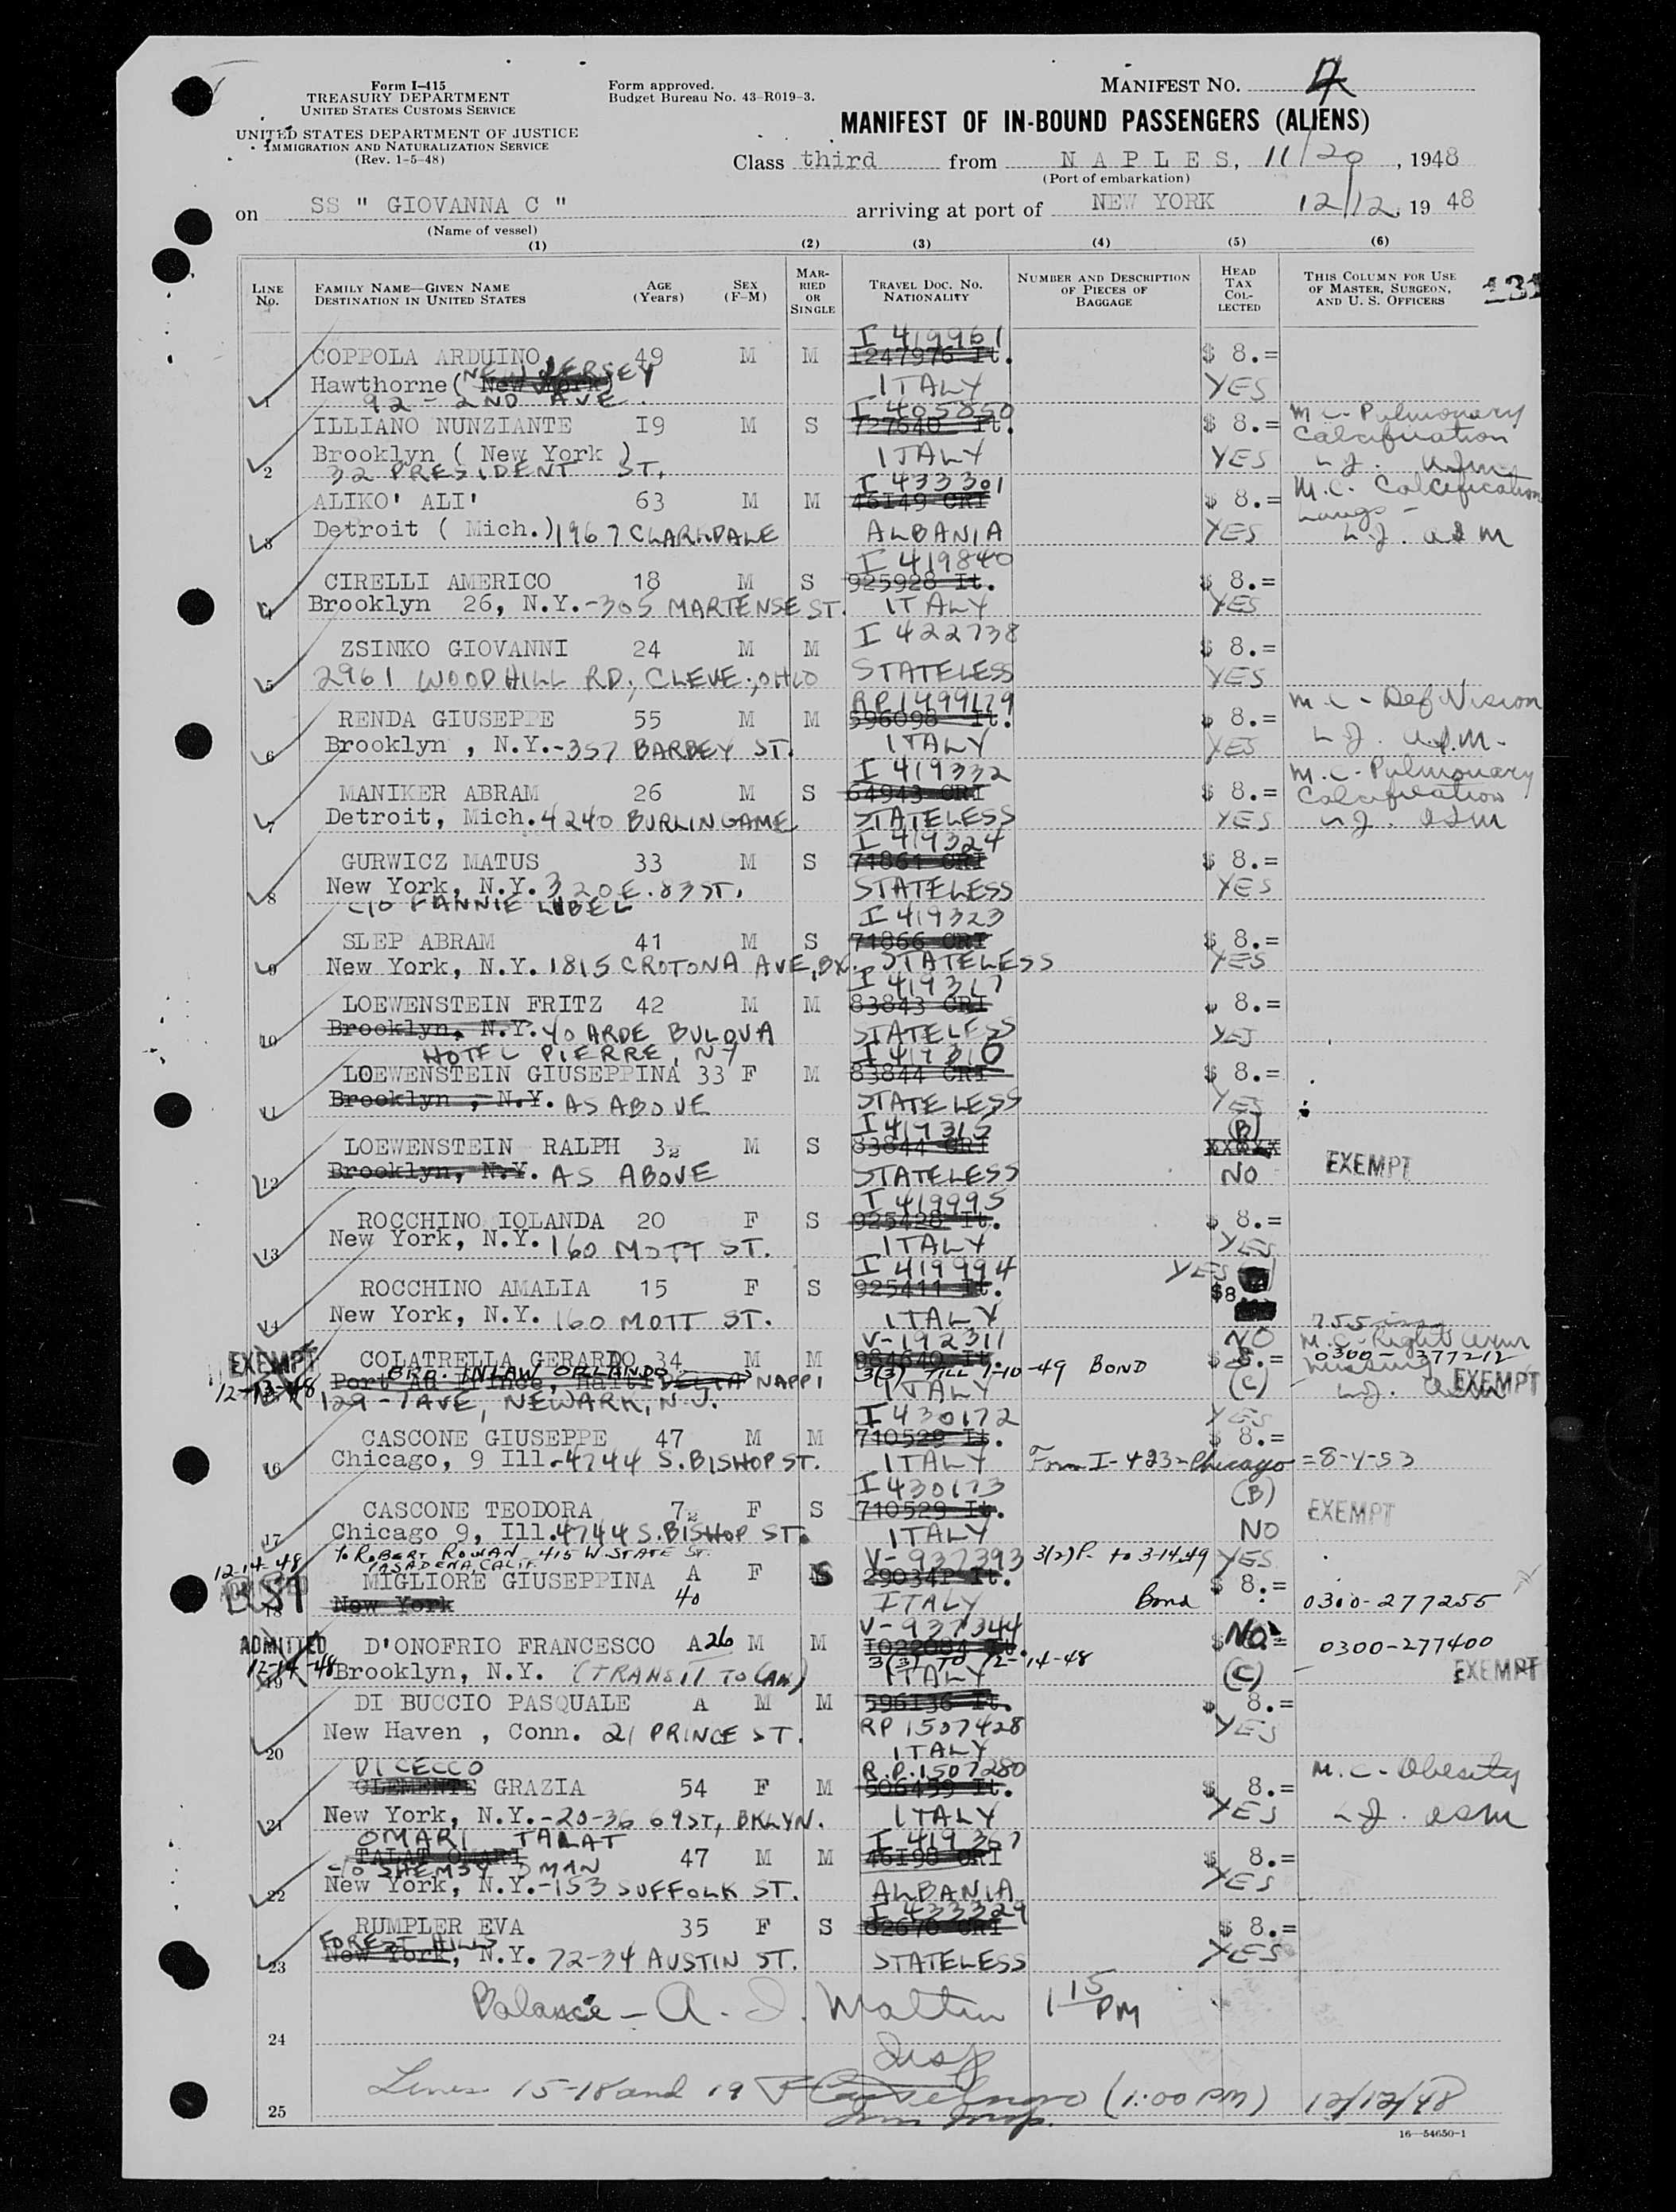 Form I-415
TREASURY DEPARTMENT
UNITED STATES CUSTOMS SERVICE
UNITED STATES DEPARTMENT OF JUSTICE
IMMIGRATION AND NATURALIZATION SERVICE
(Rev. 1-5-48)
Form approved.
Budget Bureau No. 43-R019-3.
MANIFEST NO.
MANIFEST OF IN-BOUND PASSENGERS (ALIENS)
Class third from NAPLES, 11/20, 1948
(Port of embarkation)
on SS " GIOVANNA C " arriving at port of NEW YORK 12/12, 1948
(Name of vessel)
(1) (2) (3) (4) (5) (6)
LINE NO. FAMILY NAME—GIVEN NAME DESTINATION IN UNITED STATES AGE (Years) SEX (F-M) MARRIED OR SINGLE TRAVEL DOC. NO. NATIONALITY NUMBER AND DESCRIPTION OF PIECES OF BAGGAGE HEAD TAX COLLECTED THIS COLUMN FOR USE OF MASTER, SURGEON, AND U. S. OFFICERS
131
I 419961
COPPOLA ARDUINO 49 M M I247976 It. $ 8.=
Hawthorne ( New York) NEW JERSEY ITALY YES
1 92 - 2ND AVE.
I 405850
ILLIANO NUNZIANTE I9 M S 727640 It. $ 8.= M C - Pulmonary Calcification
Brooklyn ( New York ) ITALY YES
2 32 PRESIDENT ST.
I 433301
ALIKO' ALI' 63 M M 46149 CRI $ 8.= M.C. Calcification Lungs -
3 Detroit ( Mich.) 1967 CLARKDALE ALBANIA YES
I 419840
CIRELLI AMERICO 18 M S 925928 It. $ 8.=
4 Brooklyn 26, N.Y.-305 MARTENSE ST. ITALY YES
ZSINKO GIOVANNI 24 M M I 422738 $ 8.=
5 2961 WOODHILL RD., CLEVE., OHIO STATELESS YES
RP 1499179
RENDA GIUSEPPE 55 M M 596098 It. $ 8.= M C - Def Vision
6 Brooklyn , N.Y.-357 BARBEY ST. ITALY YES
I 419332
MANIKER ABRAM 26 M S 64943 CRI $ 8.= M.C - Pulmonary Calcification
7 Detroit, Mich. 4240 BURLINGAME STATELESS YES
I 419324
GURWICZ MATUS 33 M S 71861 CRI $ 8.=
New York, N.Y. 320 E. 83 ST. STATELESS YES
8 C/O FANNIE LUBEL
I 419323
SLEP ABRAM 41 M S 71866 CRI $ 8.=
9 New York, N.Y. 1815 CROTONA AVE, BX. STATELESS YES
I 419317
LOEWENSTEIN FRITZ 42 M M 83843 CRI 8.=
10 Brooklyn, N.Y. c/o ARDE BULOVA STATELESS YES
HOTEL PIERRE, NY
LOEWENSTEIN GIUSEPPINA 33 F M 83844 CRI $ 8.=
11 Brooklyn , N.Y. AS ABOVE STATELESS YES
(B)
LOEWENSTEIN RALPH 3½ M S 83844 CRI
12 Brooklyn, N.Y. AS ABOVE STATELESS NO EXEMPT
I 419995
ROCCHINO IOLANDA 20 F S 925428 It. $ 8.=
13 New York, N.Y. 160 MOTT ST. ITALY YES
I 419994 YES
ROCCHINO AMALIA 15 F S 925411 It. $8
14 New York, N.Y. 160 MOTT ST. ITALY
V-192311 NO M.C-Right arm missing
EXEMPT COLATRELLA GERARDO 34 M M 984640 It. $ 8.= 0300-377212
12-13-48 Port Au Prince, Haiti BRO. INLAW ORLANDO NAPPI 3(3) TILL 1-10-49 BOND (C) EXEMPT
129 - 7AVE, NEWARK, N.J. ITALY
I 430172 YES
CASCONE GIUSEPPE 47 M M 710529 It. $ 8.=
16 Chicago, 9 Ill.-4744 S. BISHOP ST. ITALY Form I-423-Chicago = 8-4-53
I 430173 (B)
CASCONE TEODORA 7½ F S 710529 It. EXEMPT
17 Chicago 9, Ill. 4744 S. BISHOP ST. ITALY NO
12-14-48 c/o ROBERT ROWAN 415 W. STATE ST. PASADENA, CALIF. V-937393 3(2) P. to 3-14-49 YES
MIGLIORE GIUSEPPINA A F S 29034P It. $ 8.=
18 New York 40 ITALY Bond 0300-277255
V-937344
ADMITTED D'ONOFRIO FRANCESCO A 26 M M I022084 It. NO 0300-277400
12-14-48 3(3) TO 12-14-48
19 Brooklyn, N.Y. (TRANSIT TO CAN) ITALY (C) EXEMPT
DI BUCCIO PASQUALE A M M 596136 It. 8.=
20 New Haven , Conn. 21 PRINCE ST. RP 1507428 ITALY YES
DICECCO R.P. 1507280
CLEMENTE GRAZIA 54 F M 506459 It. $ 8.= M.C - Obesity
21 New York, N.Y.-20-36 69 ST, BKLYN. ITALY YES
OMARI TALAT I 419367
TALAT OMARI 47 M M 46I98 CRI $ 8.=
C/O SHEMSY OMAN
22 New York, N.Y.-153 SUFFOLK ST. ALBANIA YES
I 433329
RUMPLER EVA 35 F S 62670 CRI $ 8.=
FOREST HILLS
23 New York, N.Y. 72-34 AUSTIN ST. STATELESS YES
Balance - A. J. 1 15 PM
24 Insp
Lines 15-18 and 19 (1:00 PM) 12/12/48
25 Imm Insp.
16—54650-1